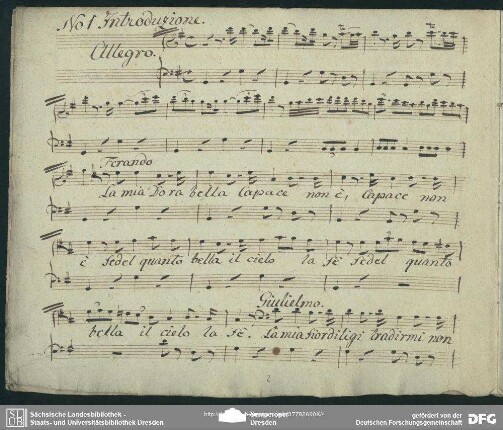 No 1 Introduzione.
Allegro.
Ferando
La mia Dora bella Capace non è, Capace non
è fedel quanto bella il cielo la fè fedel quanto
Giulielmo.
bella il cielo la fè. La mia fiordiligi tradirmi non
2
Sächsische Landesbibliothek -
Staats- und Universitätsbibliothek Dresden
gefördert von der
Deutschen Forschungsgemeinschaft
DFG